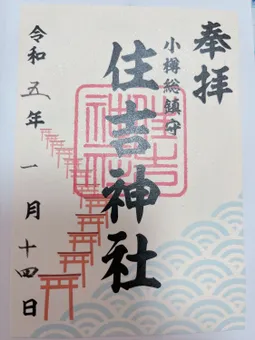 奉拝
小樽総鎮守
住吉神社
令和五年一月十四日